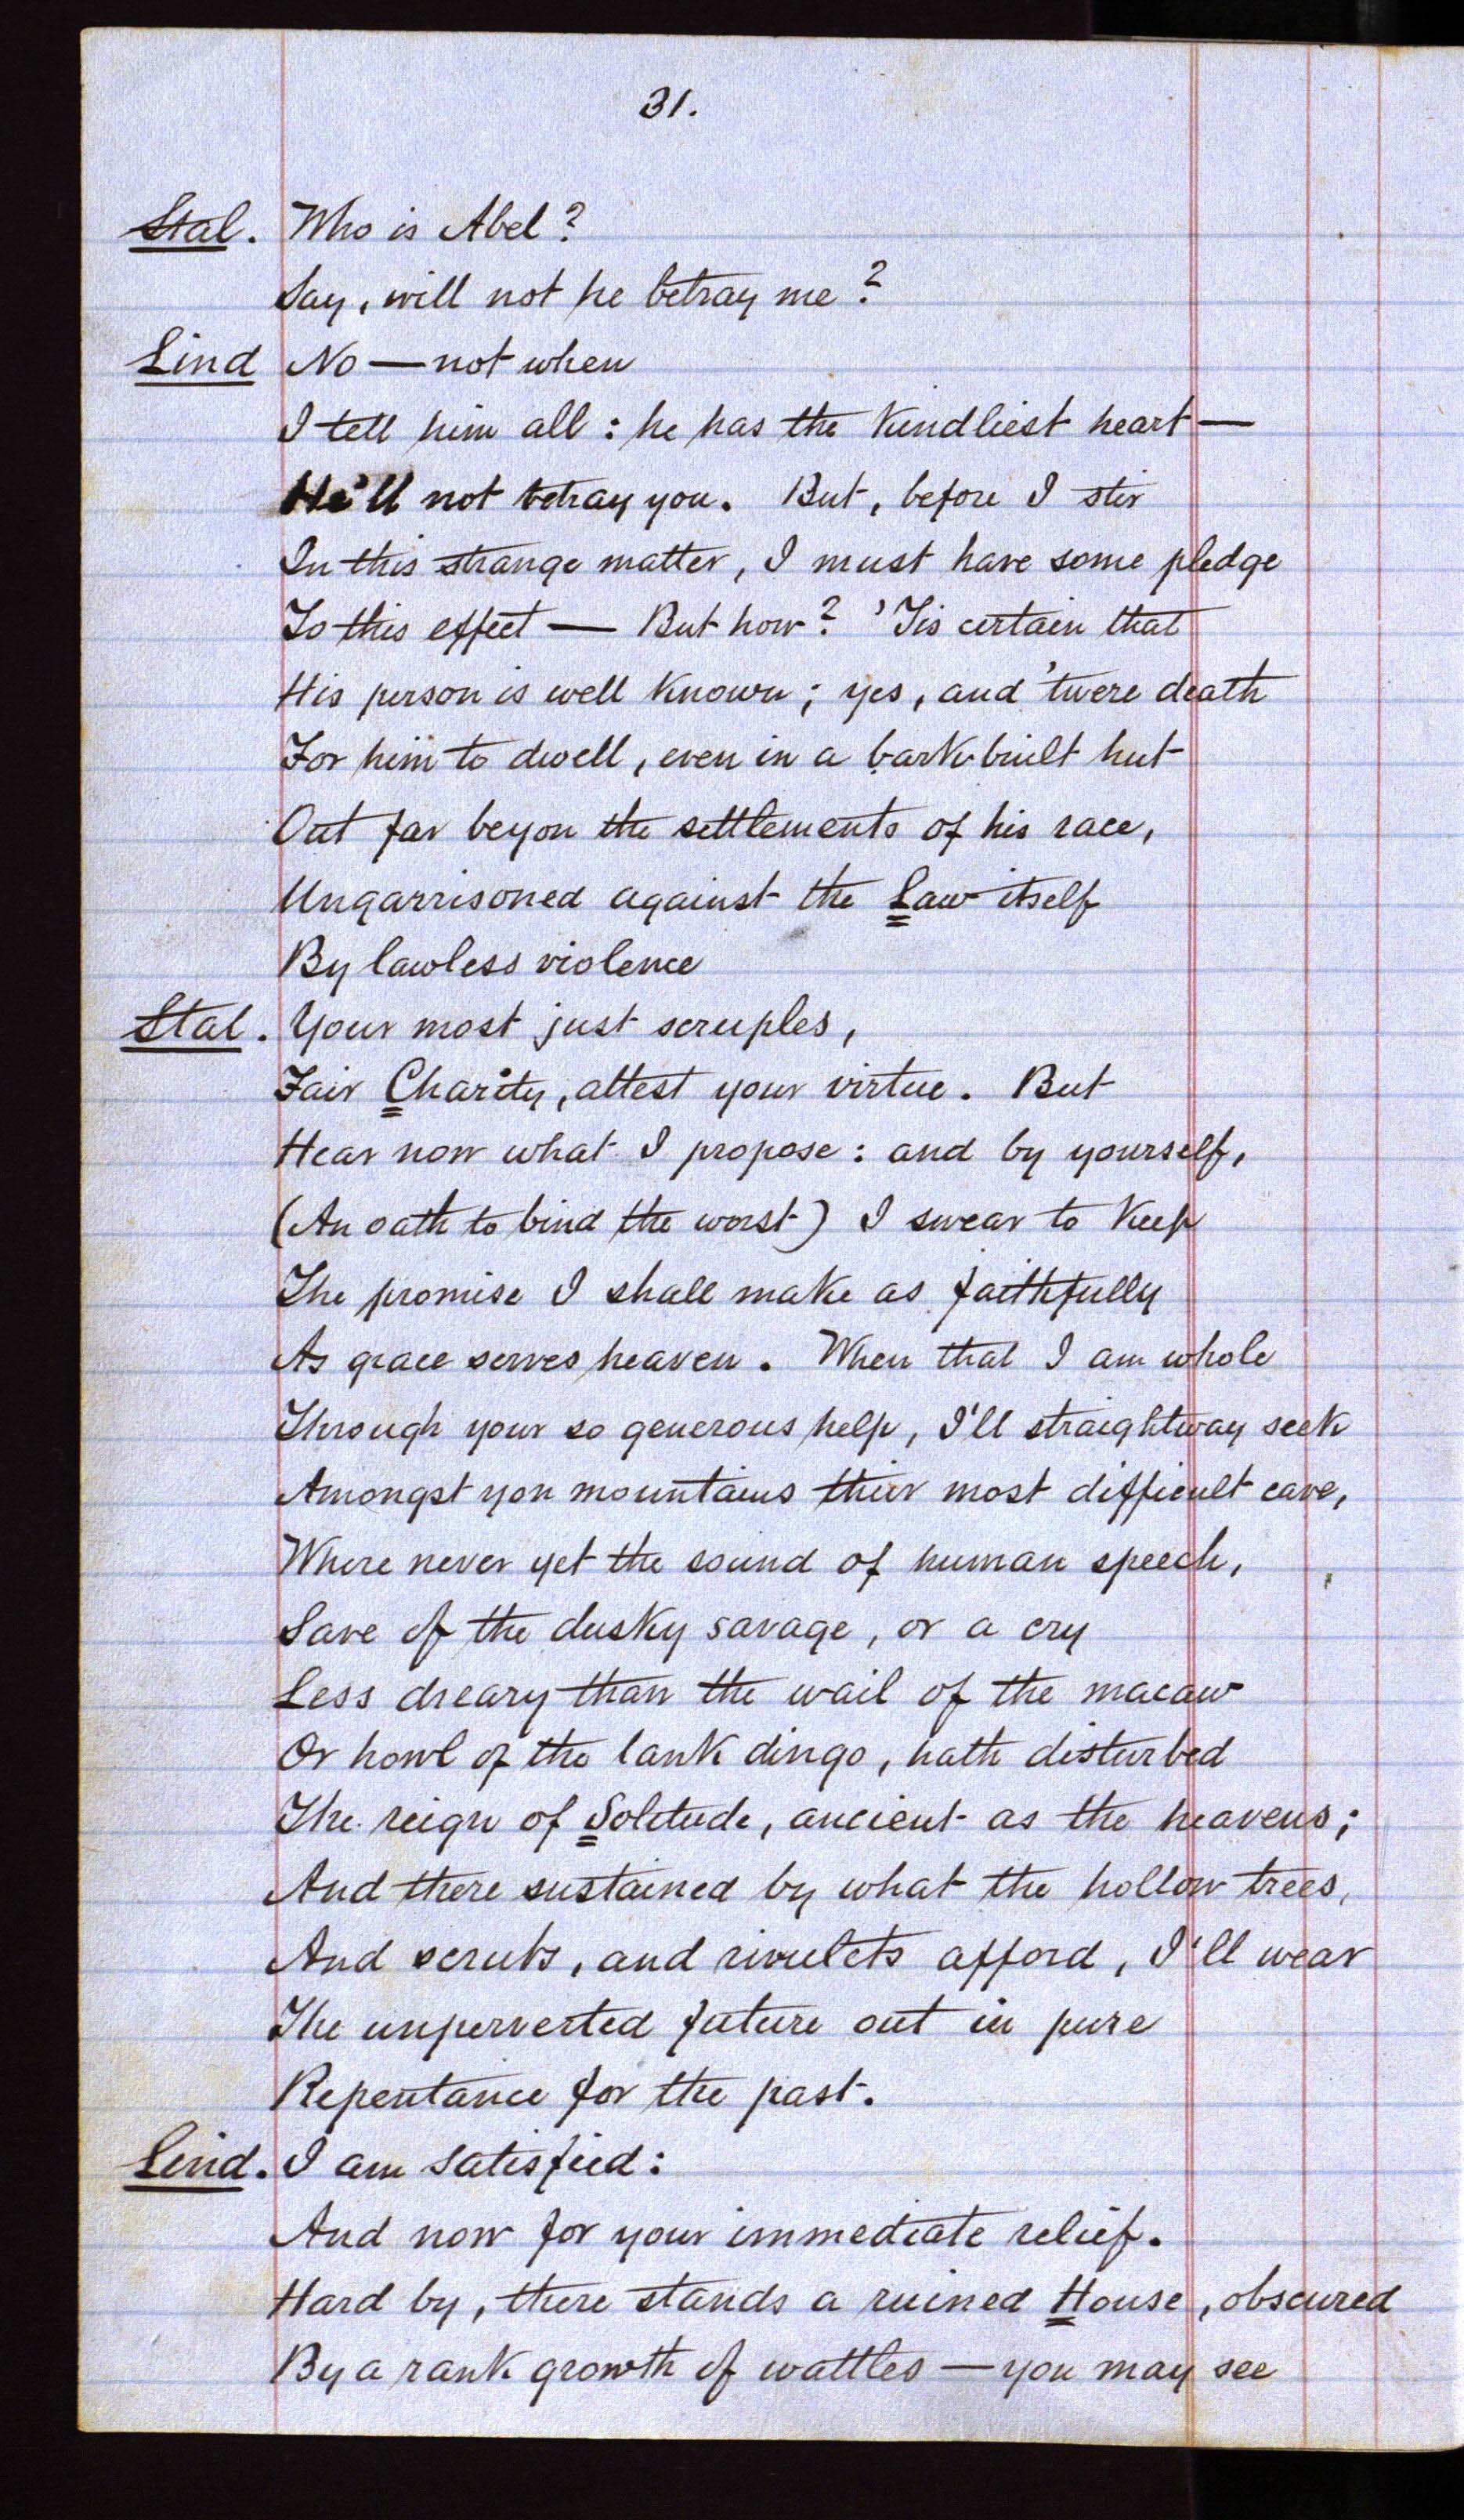 31.
Stal. Who is Abel?
Say, will not he betray me?
Lind No — not when
I tell him all: he has the kindliest heart —
He'll not betray you. But, before I stir
In this strange matter, I must have some pledge
To this effect — But how? 'Tis certain that
His person is well known; yes, and 'twere death
For him to dwell, even in a bark-built hut
Out far beyon the settlements of his race,
Ungarrisoned against the Law itself
By lawless violence
Stal. Your most just scruples,
Fair Charity, attest your virtue. But
Hear now what I propose: and by yourself,
(An oath to bind the worst) I swear to keep
The promise I shall make as faithfully
As grace serves heaven. When that I am whole
Through your so generous help, I'll straightway seek
Amongst yon mountains their most difficult cave,
Where never yet the sound of human speech,
Save of the dusky savage, or a cry
Less dreary than the wail of the macaw
Or howl of the lank dingo, hath disturbed
The reign of Solitude, ancient as the heavens;
And there sustained by what the hollow trees,
And scrubs, and rivulets afford, I'll wear
The unperverted future out in pure
Repentance for the past.
Lind. I am satisfied:
And now for your immediate relief.
Hard by, there stands a ruined House, obscured
By a rank growth of wattles — you may see